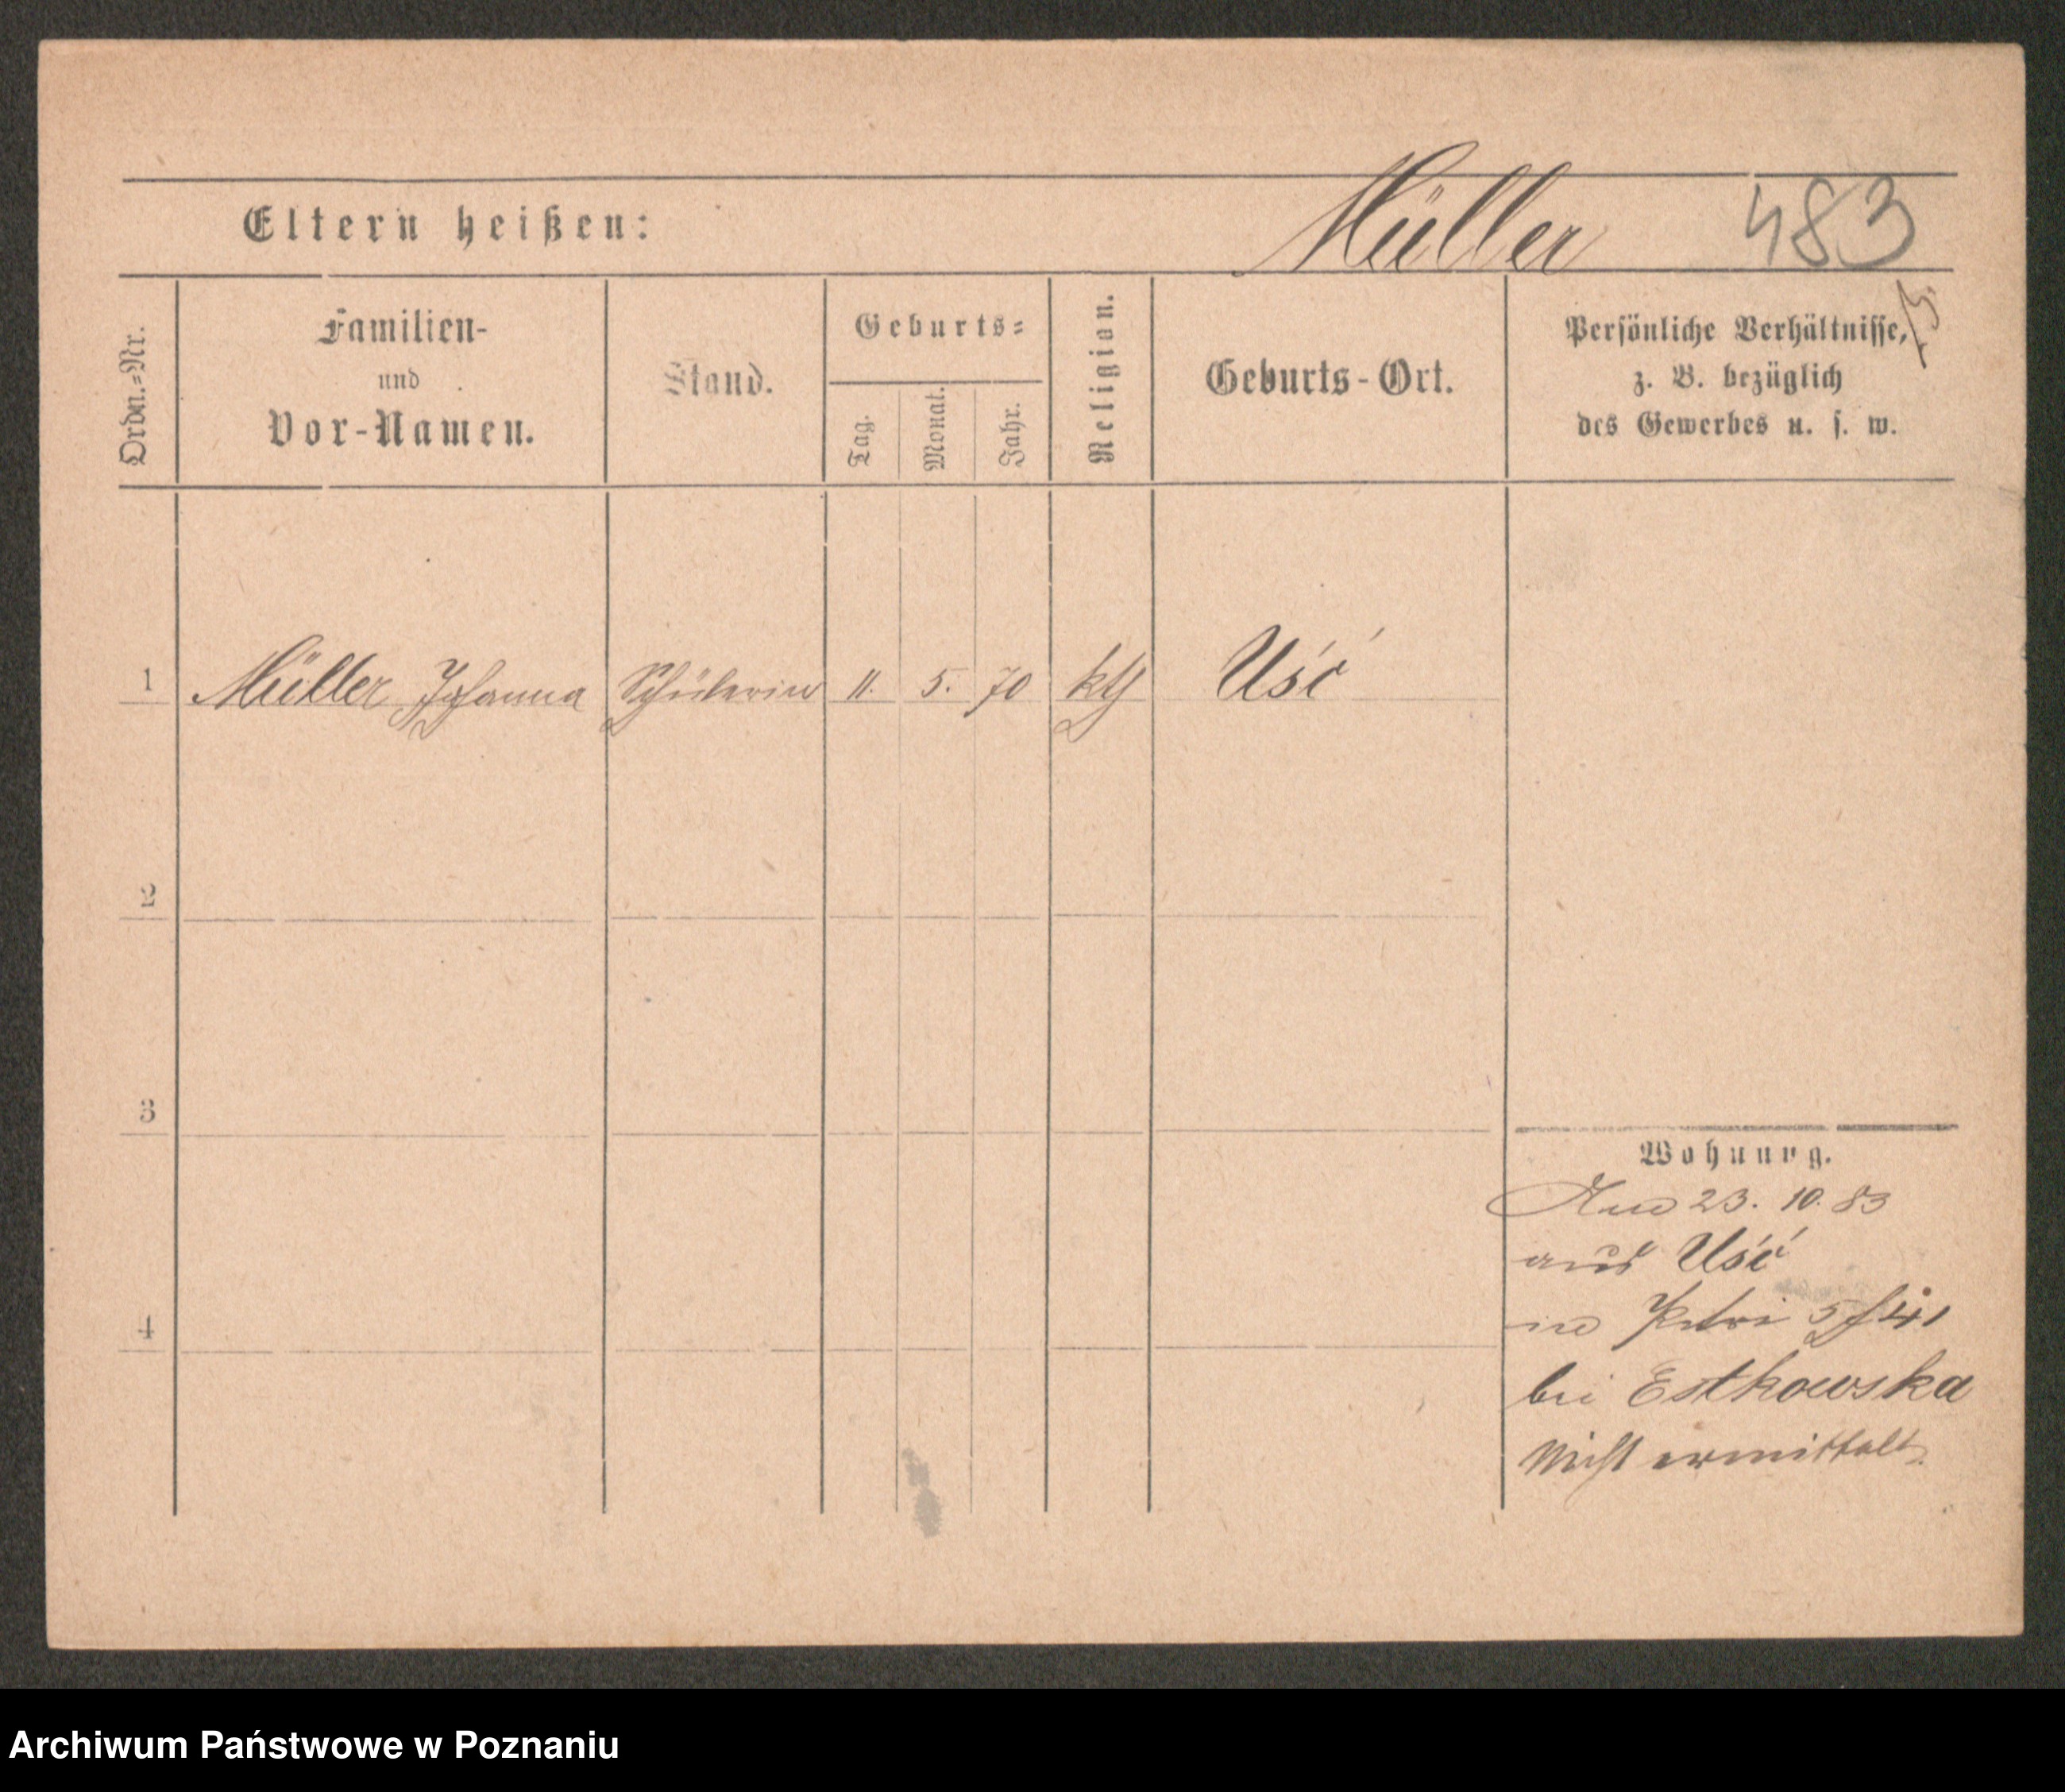 Müller 483
Eltern heißen:
Ordn.=Nr.
Familien-
und
Vor-Namen.
Stand.
Geburts=
Tag.
Monat.
Jahr.
Religion.
Geburts-Ort.
Persönliche Verhältnisse,
z. B. bezüglich
des Gewerbes u. s. w.
1 Müller Johanna Schülerin 11. 5. 70 kth Uść
2
3
4
Wohnung.
23. 10. 83
aus Uść
in Petri
bei Estkowska
Nicht ermittelt.
Archiwum Państwowe w Poznaniu